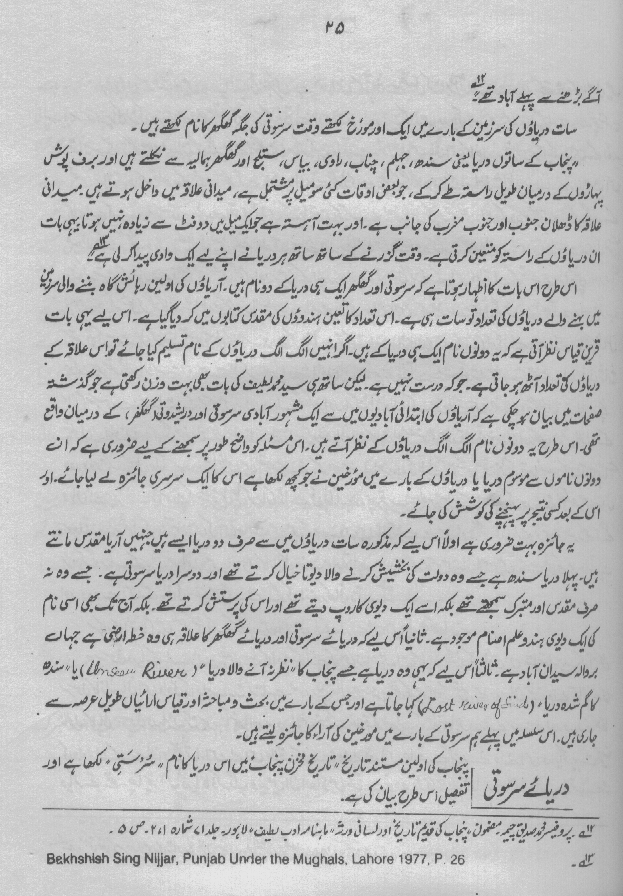 ۲۵
آگے بڑھنے سے پہلے آباد تھے۔ ۱۲
سات دریاؤں کی سرزمین کے بارے میں ایک اور مورّخ لکھتے وقت سرسوتی کی جگہ گھگھر کا نام لکھتے ہیں۔
"پنجاب کے ساتوں دریا یعنی سندھ، جہلم، چناب، راوی، بیاس، ستلج اور گھگھر ہمالیہ سے نکلتے ہیں اور برف پوش
پہاڑوں کے درمیان طویل راستہ طے کر کے، جو بعض اوقات کئی سو میل پر مشتمل ہے، میدانی علاقہ میں داخل ہوتے ہیں۔ میدانی
علاقہ کا ڈھلان جنوب اور جنوب مغرب کی جانب ہے۔ اور بہت آہستہ ہے جو ایک میل میں دو فٹ سے زیادہ نہیں ہوتا یہی بات
ان دریاؤں کے راستہ کو متعین کرتی ہے۔ وقت گزرنے کے ساتھ ساتھ ہر دریا نے اپنے لیے ایک وادی پیدا کر لی ہے" ۱۳
اس طرح اس بات کا اظہار ہوتا ہے کہ سرسوتی اور گھگھر ایک ہی دریا کے دو نام ہیں۔ آریاؤں کی اولین رہائش گاہ بننے والی سرزمین
میں بہنے والے دریاؤں کی تعداد تو سات ہی ہے۔ اس تعداد کا تعین ہندوؤں کی مقدس کتابوں میں کر دیا گیا ہے۔ اس لیے یہی بات
قرین قیاس نظر آتی ہے کہ یہ دونوں نام ایک ہی دریا کے ہیں۔ اگر انہیں الگ الگ دریاؤں کے نام تسلیم کیا جائے تو اس علاقہ کے
دریاؤں کی تعداد آٹھ ہو جاتی ہے۔ جو کہ درست نہیں ہے۔ لیکن ساتھ ہی سید محمد لطیف کی بات بھی بہت وزن رکھتی ہے جو گذشتہ
صفحات میں بیان ہو چکی ہے کہ آریاؤں کی ابتدائی آبادیوں میں سے ایک مشہور آبادی سرسوتی اور دریشدوتی (گھگھر)، کے درمیان واقع
تھی۔ اس طرح یہ دونوں نام الگ الگ دریاؤں کے نظر آتے ہیں۔ اس مسئلہ کو واضح طور پر سمجھنے کے لیے ضروری ہے کہ ان
دونوں ناموں سے موسوم دریا یا دریاؤں کے بارے میں مورّخین نے جو کچھ لکھا ہے اس کا ایک سرسری جائزہ لے لیا جائے۔ اور
اسی کے بعد کسی نتیجہ پر پہنچنے کی کوشش کی جائے۔
یہ جائزہ بہت ضروری ہے اولاً اس لیے کہ مذکورہ سات دریاؤں میں سے صرف دو دریا ایسے ہیں جنہیں آریا مقدس مانتے
ہیں۔ پہلا دریا سندھ ہے جسے وہ دولت کی بخشیش کرنے والا دیوتا خیال کرتے تھے اور دوسرا دریا سرسوتی ہے۔ جسے وہ نہ
صرف مقدس اور متبرک سمجھتے تھے بلکہ اسے ایک دیوی کا روپ دیتے تھے اور اس کی پرستش کرتے تھے۔ بلکہ آج تک بھی اسی نام
کی ایک دیوی ہندو علم اصنام میں موجود ہے۔ ثانیاً اس لیے کہ دریائے سرسوتی اور دریائے گھگھر کا علاقہ ہی وہ خطہ ارضی ہے جہاں
بروالہ سیدان آباد ہے۔ ثالثاً اس لیے کہ یہی وہ دریا ہے جسے پنجاب کا "نظر نہ آنے والا دریا" (Unseen River) یا "سندھ
کا گم شدہ دریا" (Lost river of Sind) کہا جاتا ہے اور جس کے بارے میں بحث و مباحثہ اور قیاس آرائیاں طویل عرصہ سے
جاری ہیں۔ اس سلسلہ میں پہلے ہم سرسوتی کے بارے میں مورخین کی آراء کا جائزہ لیتے ہیں۔
دریائے سرسوتی
پنجاب کی اولین مستند تاریخ "تاریخ مخزن پنجاب" میں اس دریا کا نام "سَرُسَتی" لکھا ہے اور
تفصیل اس طرح بیان کی ہے۔
۱۲۔ پروفیسر محمد صدیق چیمہ۔ مضمون "پنجاب کی قدیم تاریخ اور لسانی ورثہ" ماہنامہ ادب لطیف، لاہور۔ جلد ۷۱ شمارہ ۲،۱، ص ۵۔
۱۳۔ Bakhshish Sing Nijjar, Punjab Under the Mughals, Lahore 1977, P. 26